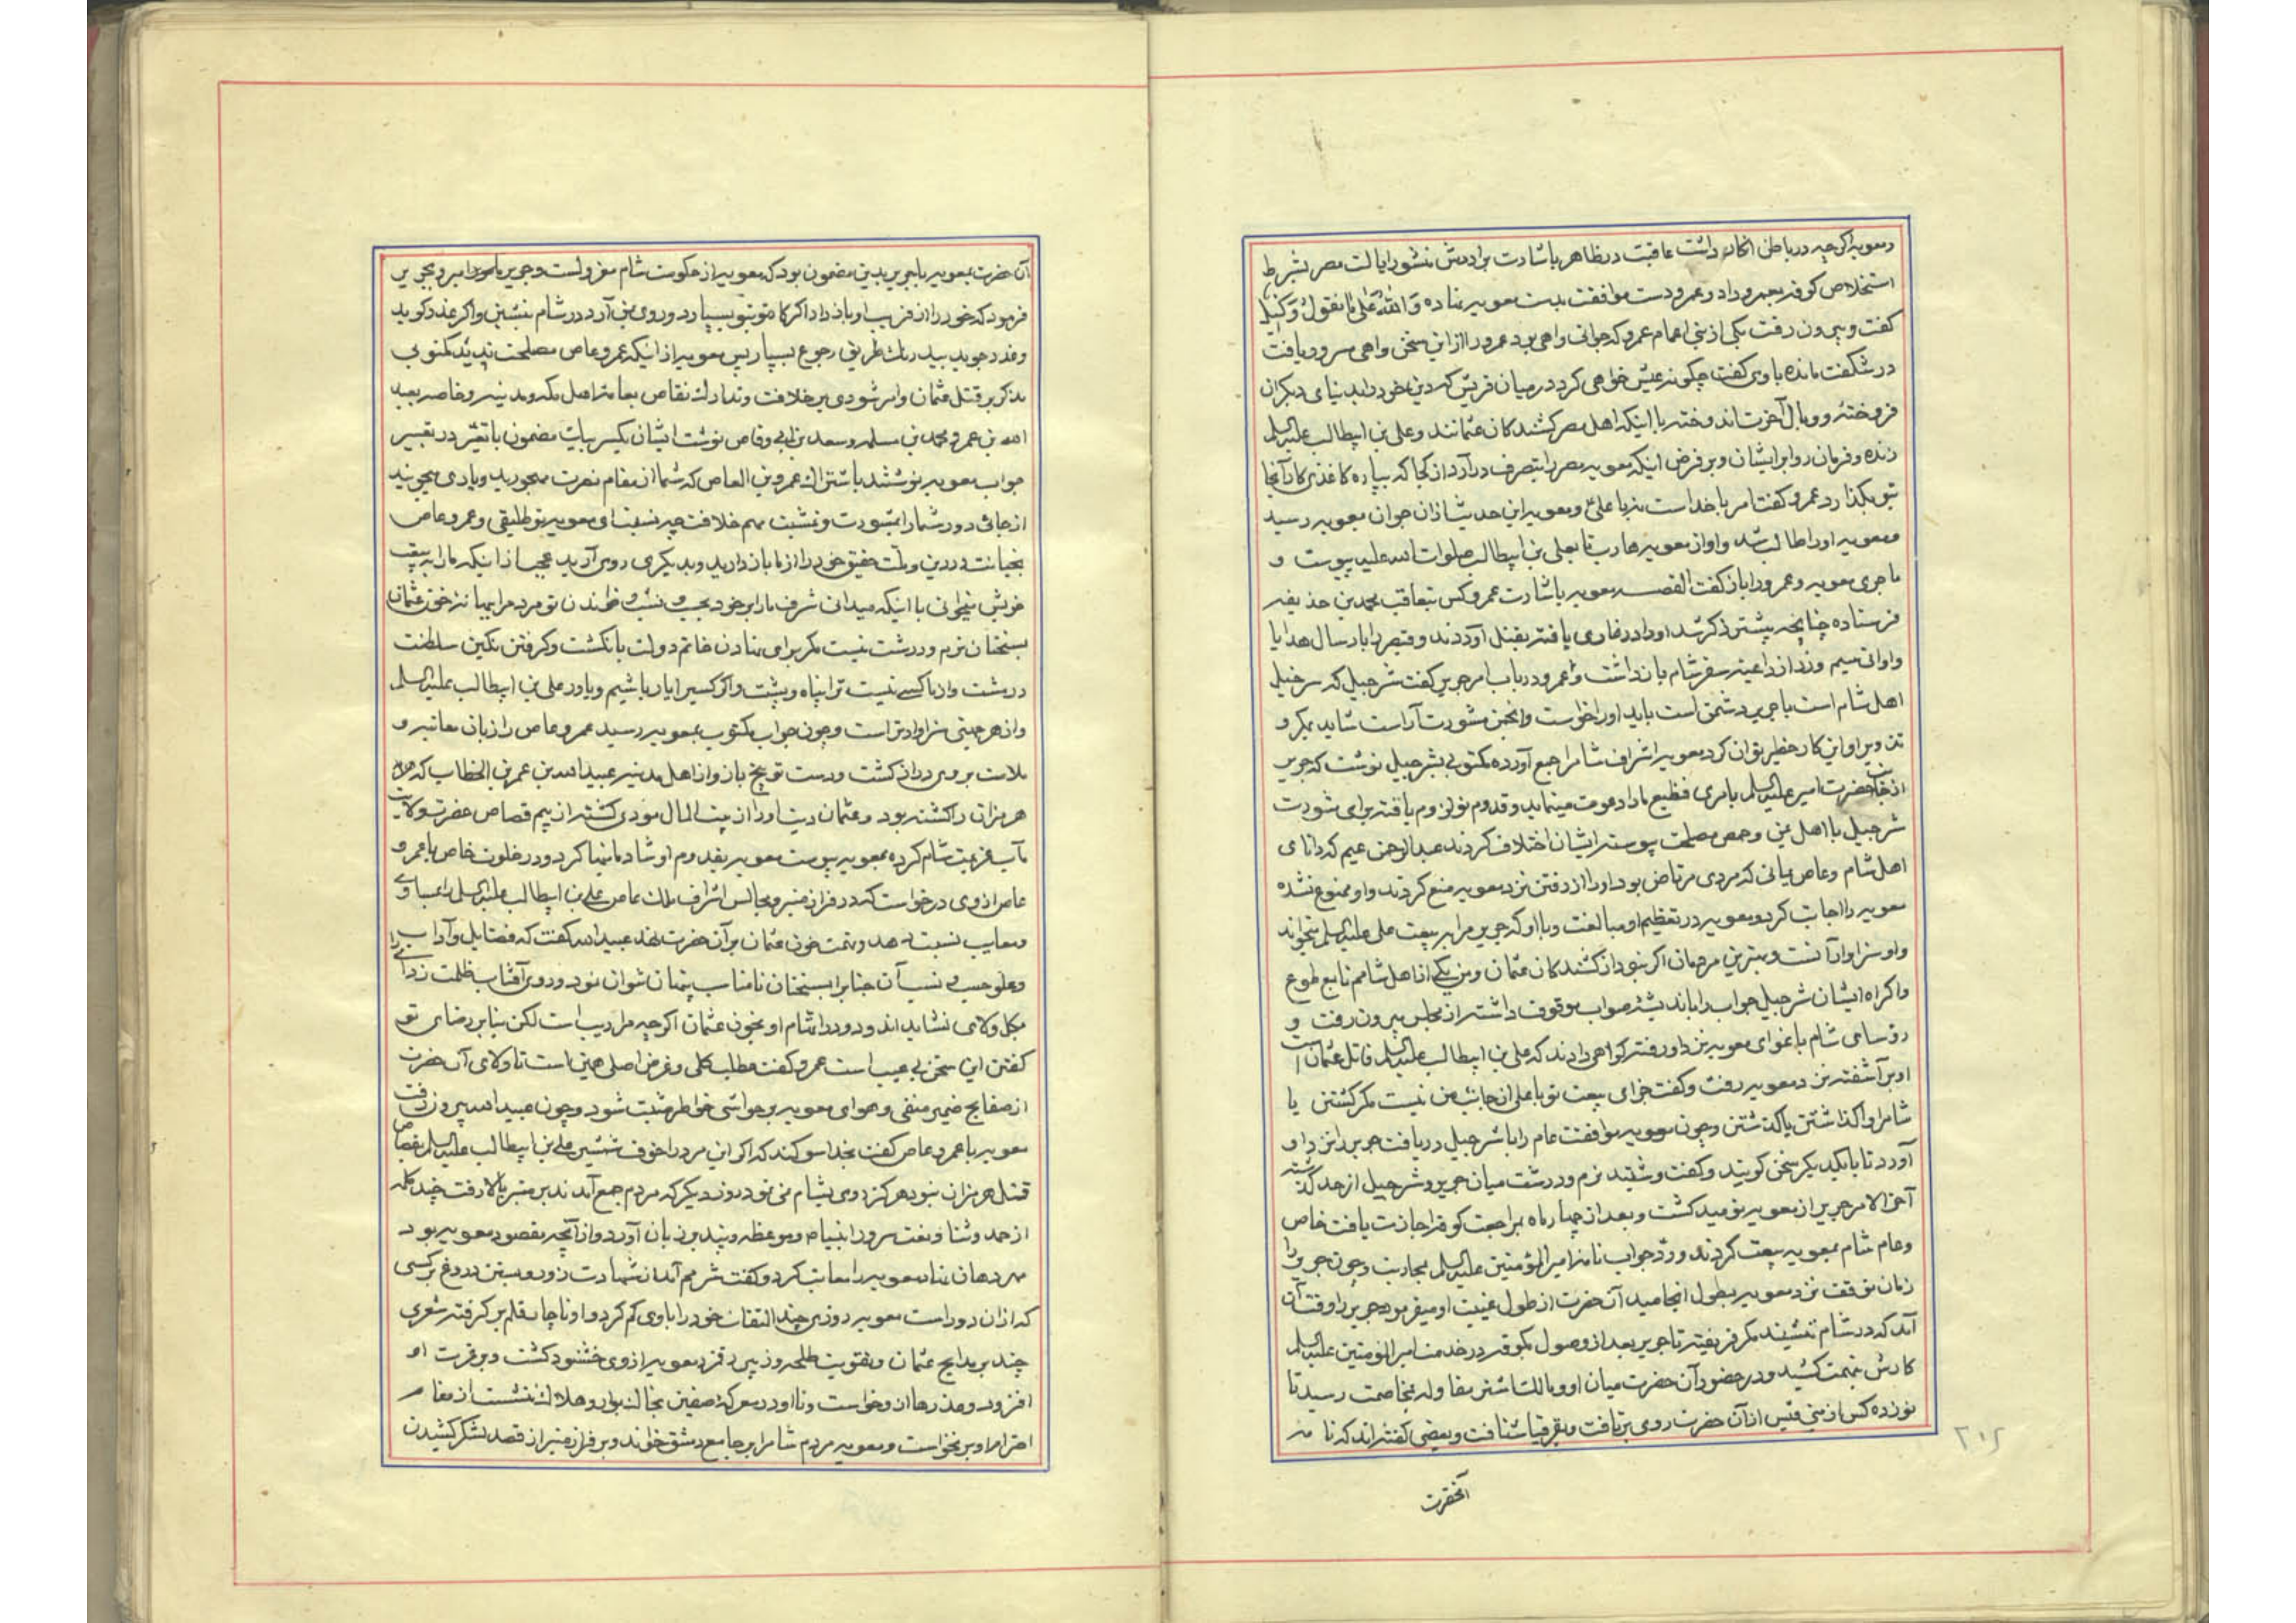 و معویه اگرچه در باطن انکار داشت عاقبت در ظاهر باشارت برادرش منشور ایالت مصر بشرط
استخلاص کوفه بعمرو داد و عمرو دست موافقت بدست معویه نهاده وَاللّٰهُ عَلیٰ مانَقُولُ وَکیل
گفت و بیرون رفت یکی از بنی اعمام عمرو که جوانی واهی بود عمرو را از این سخن واهی مسرور یافت
در شگفت مانده با وی گفت چگونه عیش خواهی کرد در میان قریش که دین خود را بدنیای دیگران
فروخته و وبال آخرت اندوخته با اینکه اهل مصر کشندکان عثمانند و علی بن ابیطالب علیه السلم
زنده و فرمان روا بر ایشان و بر فرض اینکه معویه مصر را بتصرف درآرد از کجا که بپاره کاغذی کار آنجا
بتو بگذارد عمرو گفت امر با خداست نه با علی و معویه این حدیث از ان جوان بمعویه رسید
و معویه او را طالب شد و او از معویه هاربا بعلی بن ابیطالب صلوات الله علیه پیوست و
ماجری معویه و عمرو را باز گفت القصه معویه باشارت عمرو کس بتعاقب محمد بن حذیفه
فرستاده چنانچه پیشتر ذکر شد او را در غاری یافته بقتل آوردند و قیصر را بارسال هدایا
و اوانی سیم و زر از داعیه سفر شام بازداشت و عمرو در باب امر جریر گفت شرجیل که سرخیل
اهل شام است با جریر دشمن است باید او را خواست و انجمن مشورت آراست شاید بمکر و
تدویر او این کار خطیر توان کرد معویه اشراف شام را جمع آورده مکتوبی بشرجیل نوشت که جریر
از جانب حضرت امیر علیه السلم بامری فظیع ما را دعوت مینماید و قدوم تو لزوم یافته برای مشورت
شرجیل با اهل یمن و حمص مصلحت پیوسته ایشان اختلاف کردند عبدالرحمن غیم که دانای
اهل شام و عاص یمانی که مردی مرتاض بود او را از رفتن نزد معویه منع کردند و او ممنوع نشده
معویه را اجابت کرد و معویه در تعظیم او مبالغت و با او که جریر مرا به بیعت علی علیه السلم میخواند
و او سزاوار آنست و بهترین مردمان اگر نبود از کشندکان عثمان و من یکی از اهل شامم تابع طوع
و اکراه ایشان شرجیل جواب را باندیشه صواب موقوف داشته از مجلس بیرون رفت و
روسای شام باغوای معویه نزد او رفته گواهی دادند که علی بن ابیطالب علیه السلم قاتل عثمان است
او برآشفته نزد معویه رفت و گفت جزای بیعت تو با علی از جانب من نیست مگر کشتن یا
شام را واگذاشتن یا گذشتن و چون معویه موافقت عام را با شرجیل دریافت جریر را نزد او
آورد تا با یکدیگر سخن گویند و گفت و شنید نرم و درشت میان جریر و شرجیل از حد گذشته
آخر الامر جریر از معویه نومید گشت و بعد از چهار ماه بمراجعت کوفه اجازت یافت خاص
و عام شام بمعویه بیعت کردند و رد جواب نامه امیر المؤمنین علیه السلم بمحاربت و چون جریر را
زمان توقف نزد معویه بطول انجامید آن حضرت از طول غیبت او میفرمود جریر را وقت آن
آمد که در شام ننشیند مگر فریفته تا جریر بعد از وصول بکوفه در خدمت امیر المؤمنین علیه السلم
کارش بتهمت کشید و در حضور آن حضرت میان او و مالک اشتر مقاوله بمخاصمت رسید تا
نوزده کس از بنی قیس از آن حضرت روی برتافت و بقرقیا شتافت و بعضی گفته اند که نامه
آنحضرت
۲۰۲
آن حضرت بمعویه با جریر بدین مضمون بود که معویه از حکومت شام معزولست و جریر مامور امر و بجریر
فرمود که خود را از فریب او باز دار اگر کار تو بتو بسپارد و روی بمن آرد در شام بنشین و اگر عذر گوید
و غدر جوید بیدرنک طریق رجوع بسپار پس معویه از اینکه عمرو عاص مصلحت ندید مکتوبی
بذکر قتل عثمان و امر شوری بر خلافت و تدارک تقاص بعامه اهل مکه و مدینه و خاصه بعبد
الله بن عمر و محمد بن مسلمه و سعد بن ابی وقاص نوشت ایشان یکسر بیک مضمون با تغیر در تعبیر
جواب معویه نوشتند باشتراک عمرو بن العاص که شما از مقام نصرت مهجورید و یاری میجویند
از جائی دور شما را بمشورت و تمشیت مهم خلافت چه نسبت ای معویه تو طلیقی و عمرو عاص
بخیانت در دین و ملت حقیق خود را از ما باز دارید و بدیگری روی آرید عجب از اینکه ما را به بیعت
خویش میخوانی با اینکه میدانی شرف ما را بر خود بحسب و نسب و خواندن تو مردم را بیهانه خون عثمان
بسخنان نرم و درشت نیست مگر برای نهادن خاتم دولت بانگشت و گرفتن نگین سلطنت
در مشت و از ما کسی نیست ترا پناه و پشت و اگر کسی را یار باشیم و یاور علی بن ابیطالب علیه السلم
و از هر جهتی سزاوارتر است و چون جواب مکتوب بمعویه رسید عمرو عاص را زبان معاتبه و
ملامت بر وی دراز گشت و دست توبیخ باز و از اهل مدینه عبیدالله بن عمر بن الخطاب که
هرمزان را کشته بود و عثمان دیت او را از بیت المال مودی گشته از بیم قصاص حضرت ولایت
مآب عزیمت شام کرده بمعویه پیوست معویه بقدوم او شادمانیها کرد و در خلوت خاص با عمرو
عاص از وی درخواست که در فراز منبر و مجالس اشراف ملک عاص علی بن ابیطالب علیه السلم را بمساوی
و معایب نسبت دهد و تهمت خون عثمان بر آن حضرت نهد عبیدالله گفت که فضایل و آداب را
و علو حسب و نسب آن جناب را بسخنان نامناسب پنهان نتوان نمود و روی آفتاب ظلمت زدای را
بگل و لای نشاید اندود و در دشنام او بخون عثمان اگرچه مرا ریب است لکن بنابر رضای تو
گفتن این سخن بی عیب است عمرو گفت مطلب کلی و غرض اصلی همین است تا ولای آن حضرت
از صفایح ضمیر منفی و هوای معویه بر حواشی خواطر مثبت شود و چون عبیدالله بیرون رفت
معویه با عمرو عاص گفت بخدا سوگند که اگر این مرد را خوف شمشیر علی بن ابیطالب علیه السلم بقصاص
قتل هرمزان نبود هرگز روی بشام نمی نمود روز دیگر که مردم جمع آمدند بر منبر بالا رفت چند کلمه
از حمد و ثنا و نعت سرور انبیا و موعظه و پند بر زبان آورد و از آنچه مقصود معویه بود
مهر بر دهان نهاد معویه او را معاتب کرد و گفت شرمم آمد از شهادت زور و بستن دروغ بر کسی
که از ان دور است معویه روزی چند التفات خود را با وی کم کرد و او ناچار قلم بر گرفته شعری
چند بر مدایح عثمان و تقویت طلحه و زبیر رقم زد معویه از وی خشنود گشت و بر عزت او
افزود و عذرها از او خواست و با او در معرکه صفین بخاک بوار و هلاک ننشست از مقام
احترام او برنخواست و معویه مردم شام را بر جامع دمشق خواند و بر فراز منبر از قصد لشکر کشیدن